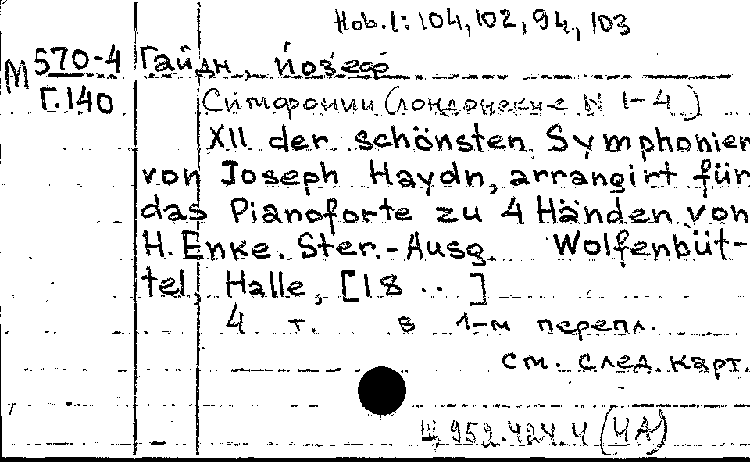 Hob.I: 104, 102, 94, 103
М 570-4 Гайдн, Йозеф
Г.140
Симфонии (лондонские N 1-4)
XII der schönsten Symphonien
von Joseph Haydn, arrangirt für
das Pianoforte zu 4 Händen von
H. Enke. Ster.-Ausg. Wolfenbüt-
tel, Halle, [18 .. ]
4 т. в 1-м перепл.
см. след. карт.
Щ 952.424.4 (4А)